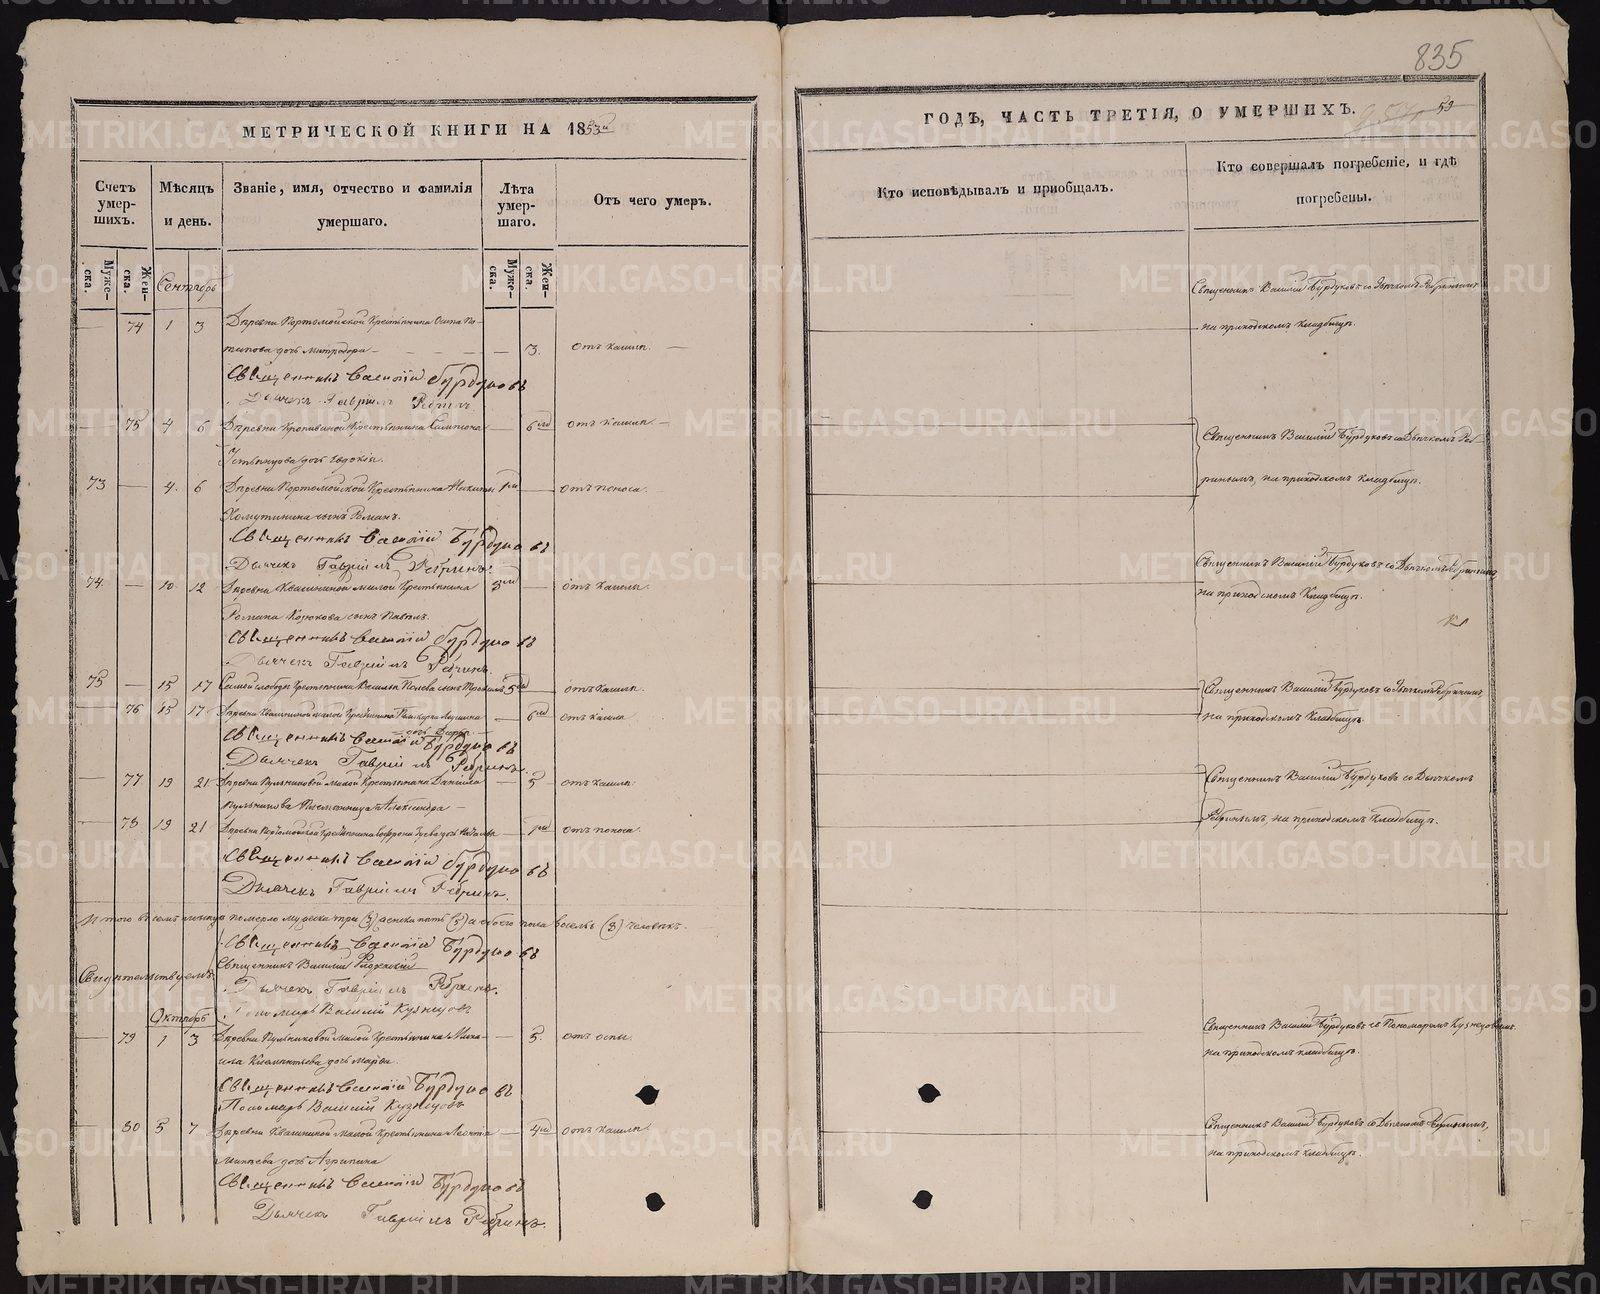 835
МЕТРИЧЕСКОЙ КНИГИ НА 1853й
ГОДЪ, ЧАСТЬ ТРЕТІЯ, О УМЕРШИХЪ.
59
Счетъ умер-шихъ.
Мѣсяцъ и день.
Званіе, имя, отчество и фамилія умершаго.
Лѣта умер-шаго.
Отъ чего умеръ.
Кто исповѣдывалъ и пріобщалъ.
Кто совершалъ погребеніе, и гдѣ погребены.
Муже-ска.
Жен-ска.
Сентябрь
Муже-ска.
Жен-ска.
74 1 3 Деревни Портомойской Крестьянина Осипа По-
тапова дочь Митродора 3. Отъ кашля.
Священникъ Василій Бурдуковъ со Дьячкомъ Ребринымъ
на приходскомъ кладбищѣ.
Священникъ Василій Бурдуковъ
Дьячекъ Гавріилъ Ребринъ
75 4 6 Деревни Крестьянина 6 отъ кашля
дочь Евдокія.
73 4. 6 Деревни Портомойской Крестьянина Никиты 1 отъ поноса.
Хомутинина сынъ Романъ.
Священникъ Василій Бурдуковъ со Дьячкомъ Реб-
ринымъ, на приходскомъ кладбищѣ.
Священникъ Василій Бурдуковъ
Дьячекъ Гавріилъ Ребринъ.
74. 10 12 Деревни Квашниной малой Крестьянина 3 отъ кашля.
Романа Корюкова сынъ Павелъ.
Священникъ Василій Бурдуковъ со Дьячкомъ Ребринымъ
на приходскомъ кладбищѣ.
Священникъ Василій Бурдуковъ
Дьячекъ Гавріилъ Ребринъ.
75 15 17 Самой слободы Крестьянина Василья сынъ 5 отъ кашля.
76 15 17 Деревни Квашниной малой Крестьянина 6 отъ кашля
дочь
Священникъ Василій Бурдуковъ со Дьячкомъ Ребринымъ,
на приходскомъ кладбищѣ.
Священникъ Василій Бурдуковъ
Дьячекъ Гавріилъ Ребринъ.
77 19 21 Деревни Пульниковой малой Крестьянина Даніила 5 отъ кашля.
Пульникова племянница Александра
78 19 21 Деревни Портомойской Крестьянина дочь 1 отъ поноса.
Священникъ Василій Бурдуковъ со Дьячкомъ
Ребринымъ, на приходскомъ кладбищѣ.
Священникъ Василій Бурдуковъ
Дьячекъ Гавріилъ Ребринъ.
Итого въ семъ мѣсяцѣ померло мужеска три (3) а женска пять (5) а обоего пола восемь (8) человѣкъ.
Священникъ Василій Бурдуковъ
Свидѣтельствуемъ: Священникъ Василій
Дьячекъ Гавріилъ Ребринъ.
Пономарь Василій Кузнецовъ
Октябрь
79 1 3 Деревни Пульниковой Малой Крестьянина Миха-
ила Клементьева дочь Марѳа. 5. отъ оспы.
Священникъ Василій Бурдуковъ съ Пономаремъ Кузнецовымъ
на приходскомъ кладбищѣ.
Священникъ Василій Бурдуковъ
Пономарь Василій Кузнецовъ
80 5 7 Деревни Квашниной Малой Крестьянина Леонтія 4 отъ кашля.
дочь Агрипина
Священникъ Василій Бурдуковъ со Дьячкомъ Ребринымъ,
на приходскомъ кладбищѣ.
Священникъ Василій Бурдуковъ
Дьячекъ Гавріилъ Ребринъ.
METRIKI.GASO-URAL.RU